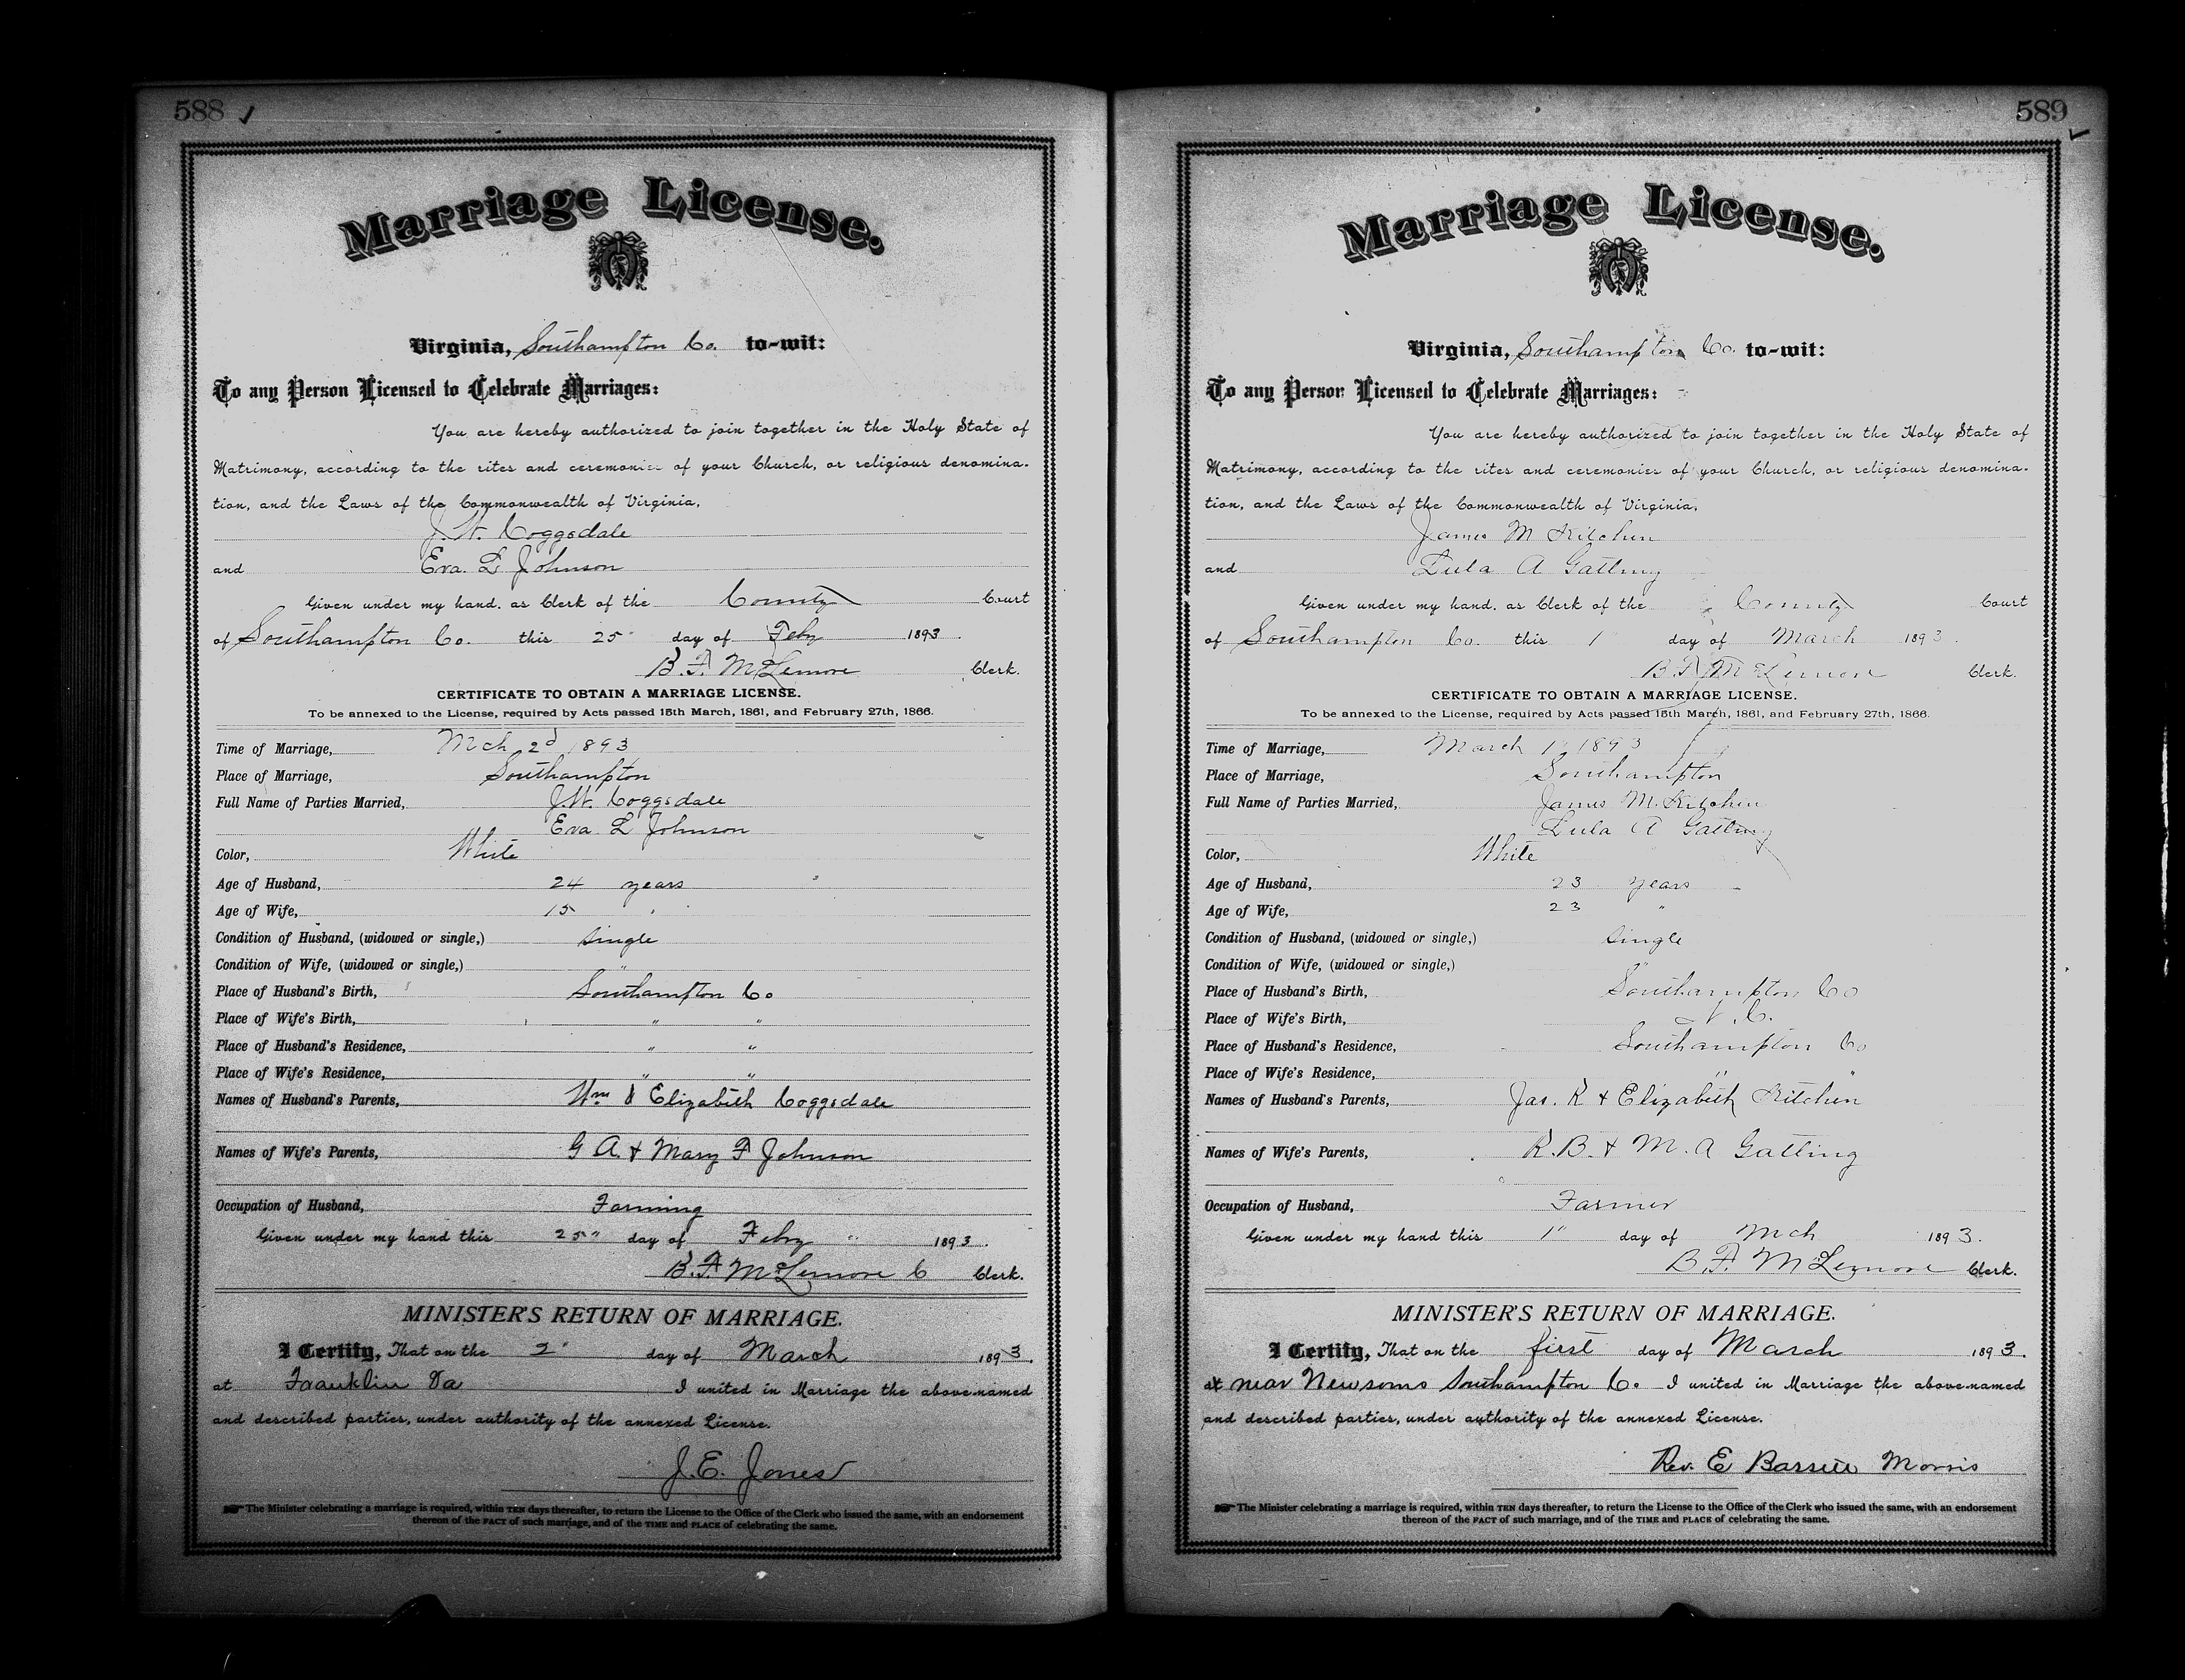 588
Marriage License.
Virginia, Southampton Co. to-wit:
To any Person Licensed to Celebrate Marriages:
You are hereby authorized to join together in the Holy State of
Matrimony, according to the rites and ceremonies of your Church, or religious denomina-
tion, and the Laws of the Commonwealth of Virginia,
J. W. Coggsdale
and Eva. L Johnson
Given under my hand, as Clerk of the County Court
of Southampton Co. this 25" day of Feby 1893.
B. F. McLemore Clerk.
CERTIFICATE TO OBTAIN A MARRIAGE LICENSE.
To be annexed to the License, required by Acts passed 15th March, 1861, and February 27th, 1866.
Time of Marriage, Mch 2d 1893
Place of Marriage, Southampton
Full Name of Parties Married, J. W. Coggsdale
Eva L Johnson
Color, White
Age of Husband, 24 years
Age of Wife, 15 "
Condition of Husband, (widowed or single,) Single
Condition of Wife, (widowed or single,) "
Place of Husband's Birth, Southampton Co
Place of Wife's Birth, " "
Place of Husband's Residence, " "
Place of Wife's Residence, " "
Names of Husband's Parents, Wm & Elizabeth Coggsdale
Names of Wife's Parents, G A. & Mary F Johnson
Occupation of Husband, Farming
Given under my hand this 25" day of Feby " 1893.
B. F. McLemore C Clerk.
MINISTER'S RETURN OF MARRIAGE.
I Certify, That on the 2" day of March 1893.
at Franklin Va I united in Marriage the above-named
and described parties, under authority of the annexed License.
J. E. Jones
The Minister celebrating a marriage is required, within TEN days thereafter, to return the License to the Office of the Clerk who issued the same, with an endorsement
thereon of the FACT of such marriage, and of the TIME and PLACE of celebrating the same.
589
Marriage License.
Virginia, Southampton Co. to-wit:
To any Person Licensed to Celebrate Marriages:
You are hereby authorized to join together in the Holy State of
Matrimony, according to the rites and ceremonies of your Church, or religious denomina-
tion, and the Laws of the Commonwealth of Virginia,
James M Kitchen
and Lula A Gatling
Given under my hand, as Clerk of the County Court
of Southampton Co. this 1" day of March 1893.
B. F. McLemore Clerk.
CERTIFICATE TO OBTAIN A MARRIAGE LICENSE.
To be annexed to the License, required by Acts passed 15th March, 1861, and February 27th, 1866.
Time of Marriage, March 1" 1893
Place of Marriage, Southampton
Full Name of Parties Married, James M. Kitchen
Lula A Gatling
Color, White
Age of Husband, 23 years
Age of Wife, 23 "
Condition of Husband, (widowed or single,) Single
Condition of Wife, (widowed or single,) "
Place of Husband's Birth, Southampton Co
Place of Wife's Birth, N. C.
Place of Husband's Residence, Southampton Co
Place of Wife's Residence, " "
Names of Husband's Parents, Jas. R & Elizabeth Kitchen
Names of Wife's Parents, R. B. & M. A Gatling
Occupation of Husband, Farmer
Given under my hand this 1" day of Mch 1893.
B. F. McLemore Clerk.
MINISTER'S RETURN OF MARRIAGE.
I Certify, That on the first day of March 1893.
at near Newsoms Southampton Co. I united in Marriage the above-named
and described parties, under authority of the annexed License.
Rev. E Morris
The Minister celebrating a marriage is required, within TEN days thereafter, to return the License to the Office of the Clerk who issued the same, with an endorsement
thereon of the FACT of such marriage, and of the TIME and PLACE of celebrating the same.